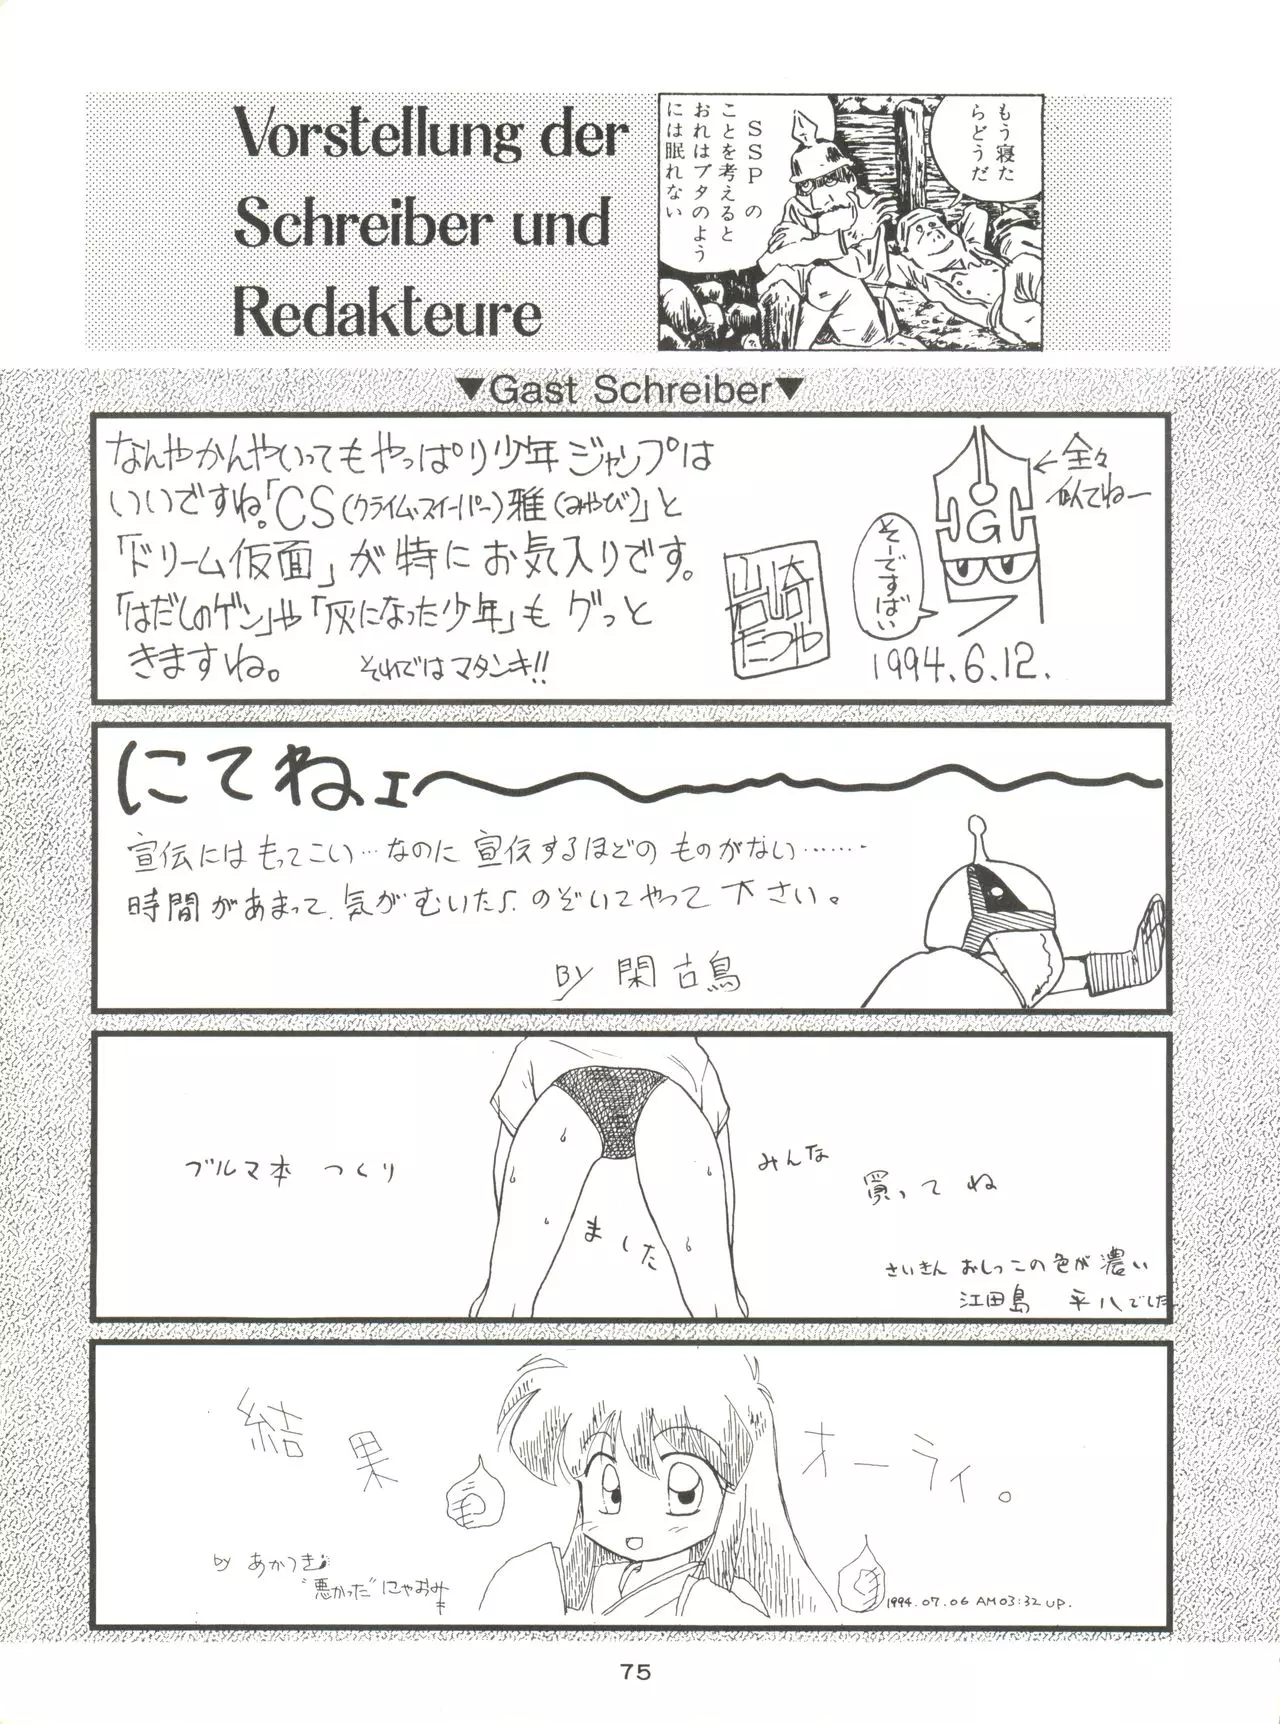 Vorstellung der
Schreiber und
Redakteure
もう寝た
らどうだ
SSPの
ことを考えると
おれはブタのよう
には眠れない
▼Gast Schreiber▼
なんやかんやいってもやっぱり少年ジャンプは
いいですね。「CS(クライム・スイーパー)雅(みやび)」と
「ドリーム仮面」が特にお気入りです。
「はだしのゲン」や「灰になった少年」もグっと
きますね。 それではマタンキ!!
山崎
たつや
そーですばい
G
←全々
似てねー
1994.6.12.
にてねェ〜
宣伝にはもってこい…なのに宣伝するほどのものがない……
時間があまって、気がむいたら、のぞいてやって下さい。
BY 閑古鳥
ブルマ本 つくり
ました
みんな
買ってね
さいきん おしっこの色が濃い
江田島 平八でした
結果
オーライ。
by あかつき
"悪かった"にゃおみ
1994.07.06 AM03:32 UP.
75